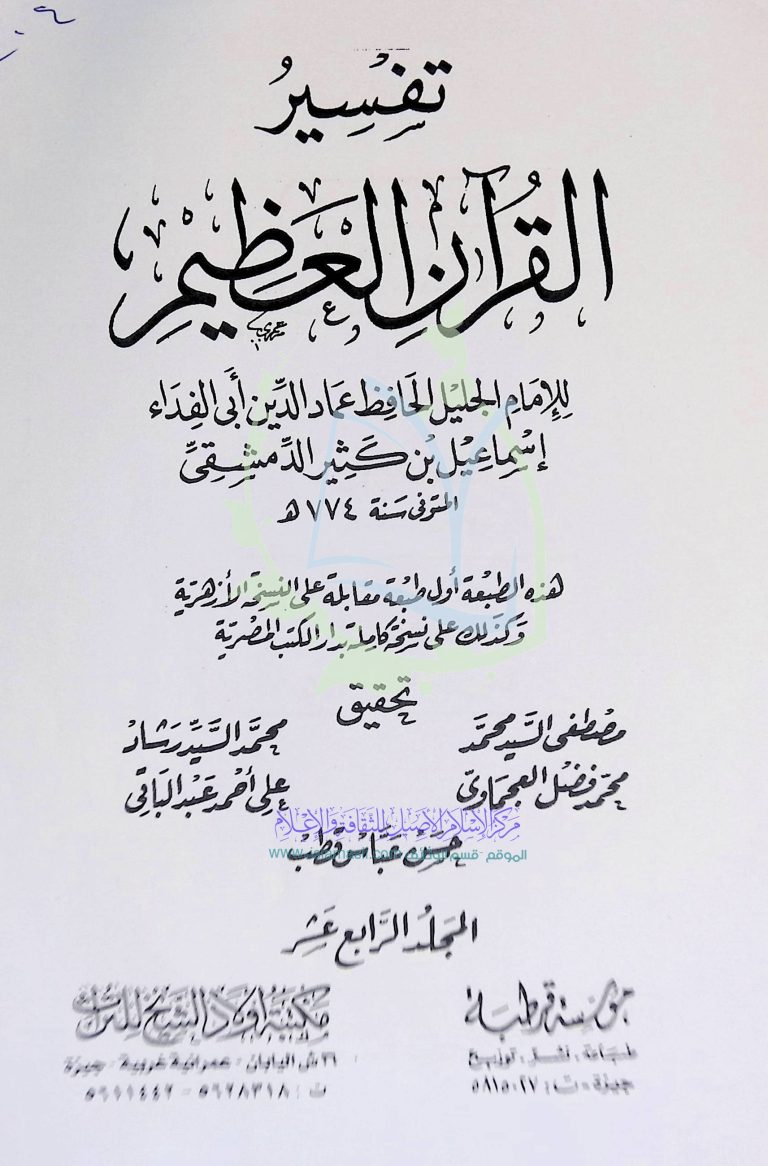 تفسير
القرآن العظيم
للإمام الجليل الحافظ عماد الدين أبي الفداء
إسماعيل بن كثير الدمشقي
المتوفى سنة ٧٧٤ هـ
هذه الطبعة أول طبعة مقابلة على النسخة الأزهرية
وكذلك على نسخة كاملة بدار الكتب المصرية
تحقيق
مصطفى السيد محمد محمد السيد رشاد
محمد فضل العجماوي علي أحمد عبد الباقي
مركز الإسلام الأصيل للثقافة والإعلام
حسن عباس قطب
المجلد الرابع عشر
مؤسسة قرطبة مكتبة أولاد الشيخ للتراث
طباعة . نشر . توزيع ٣٦ ش اليابان - عمرانية غربية - جيزة
جيزة - ت : ٥٨١٥٠٢٧ ت : ٥٦٢٨٣١٨